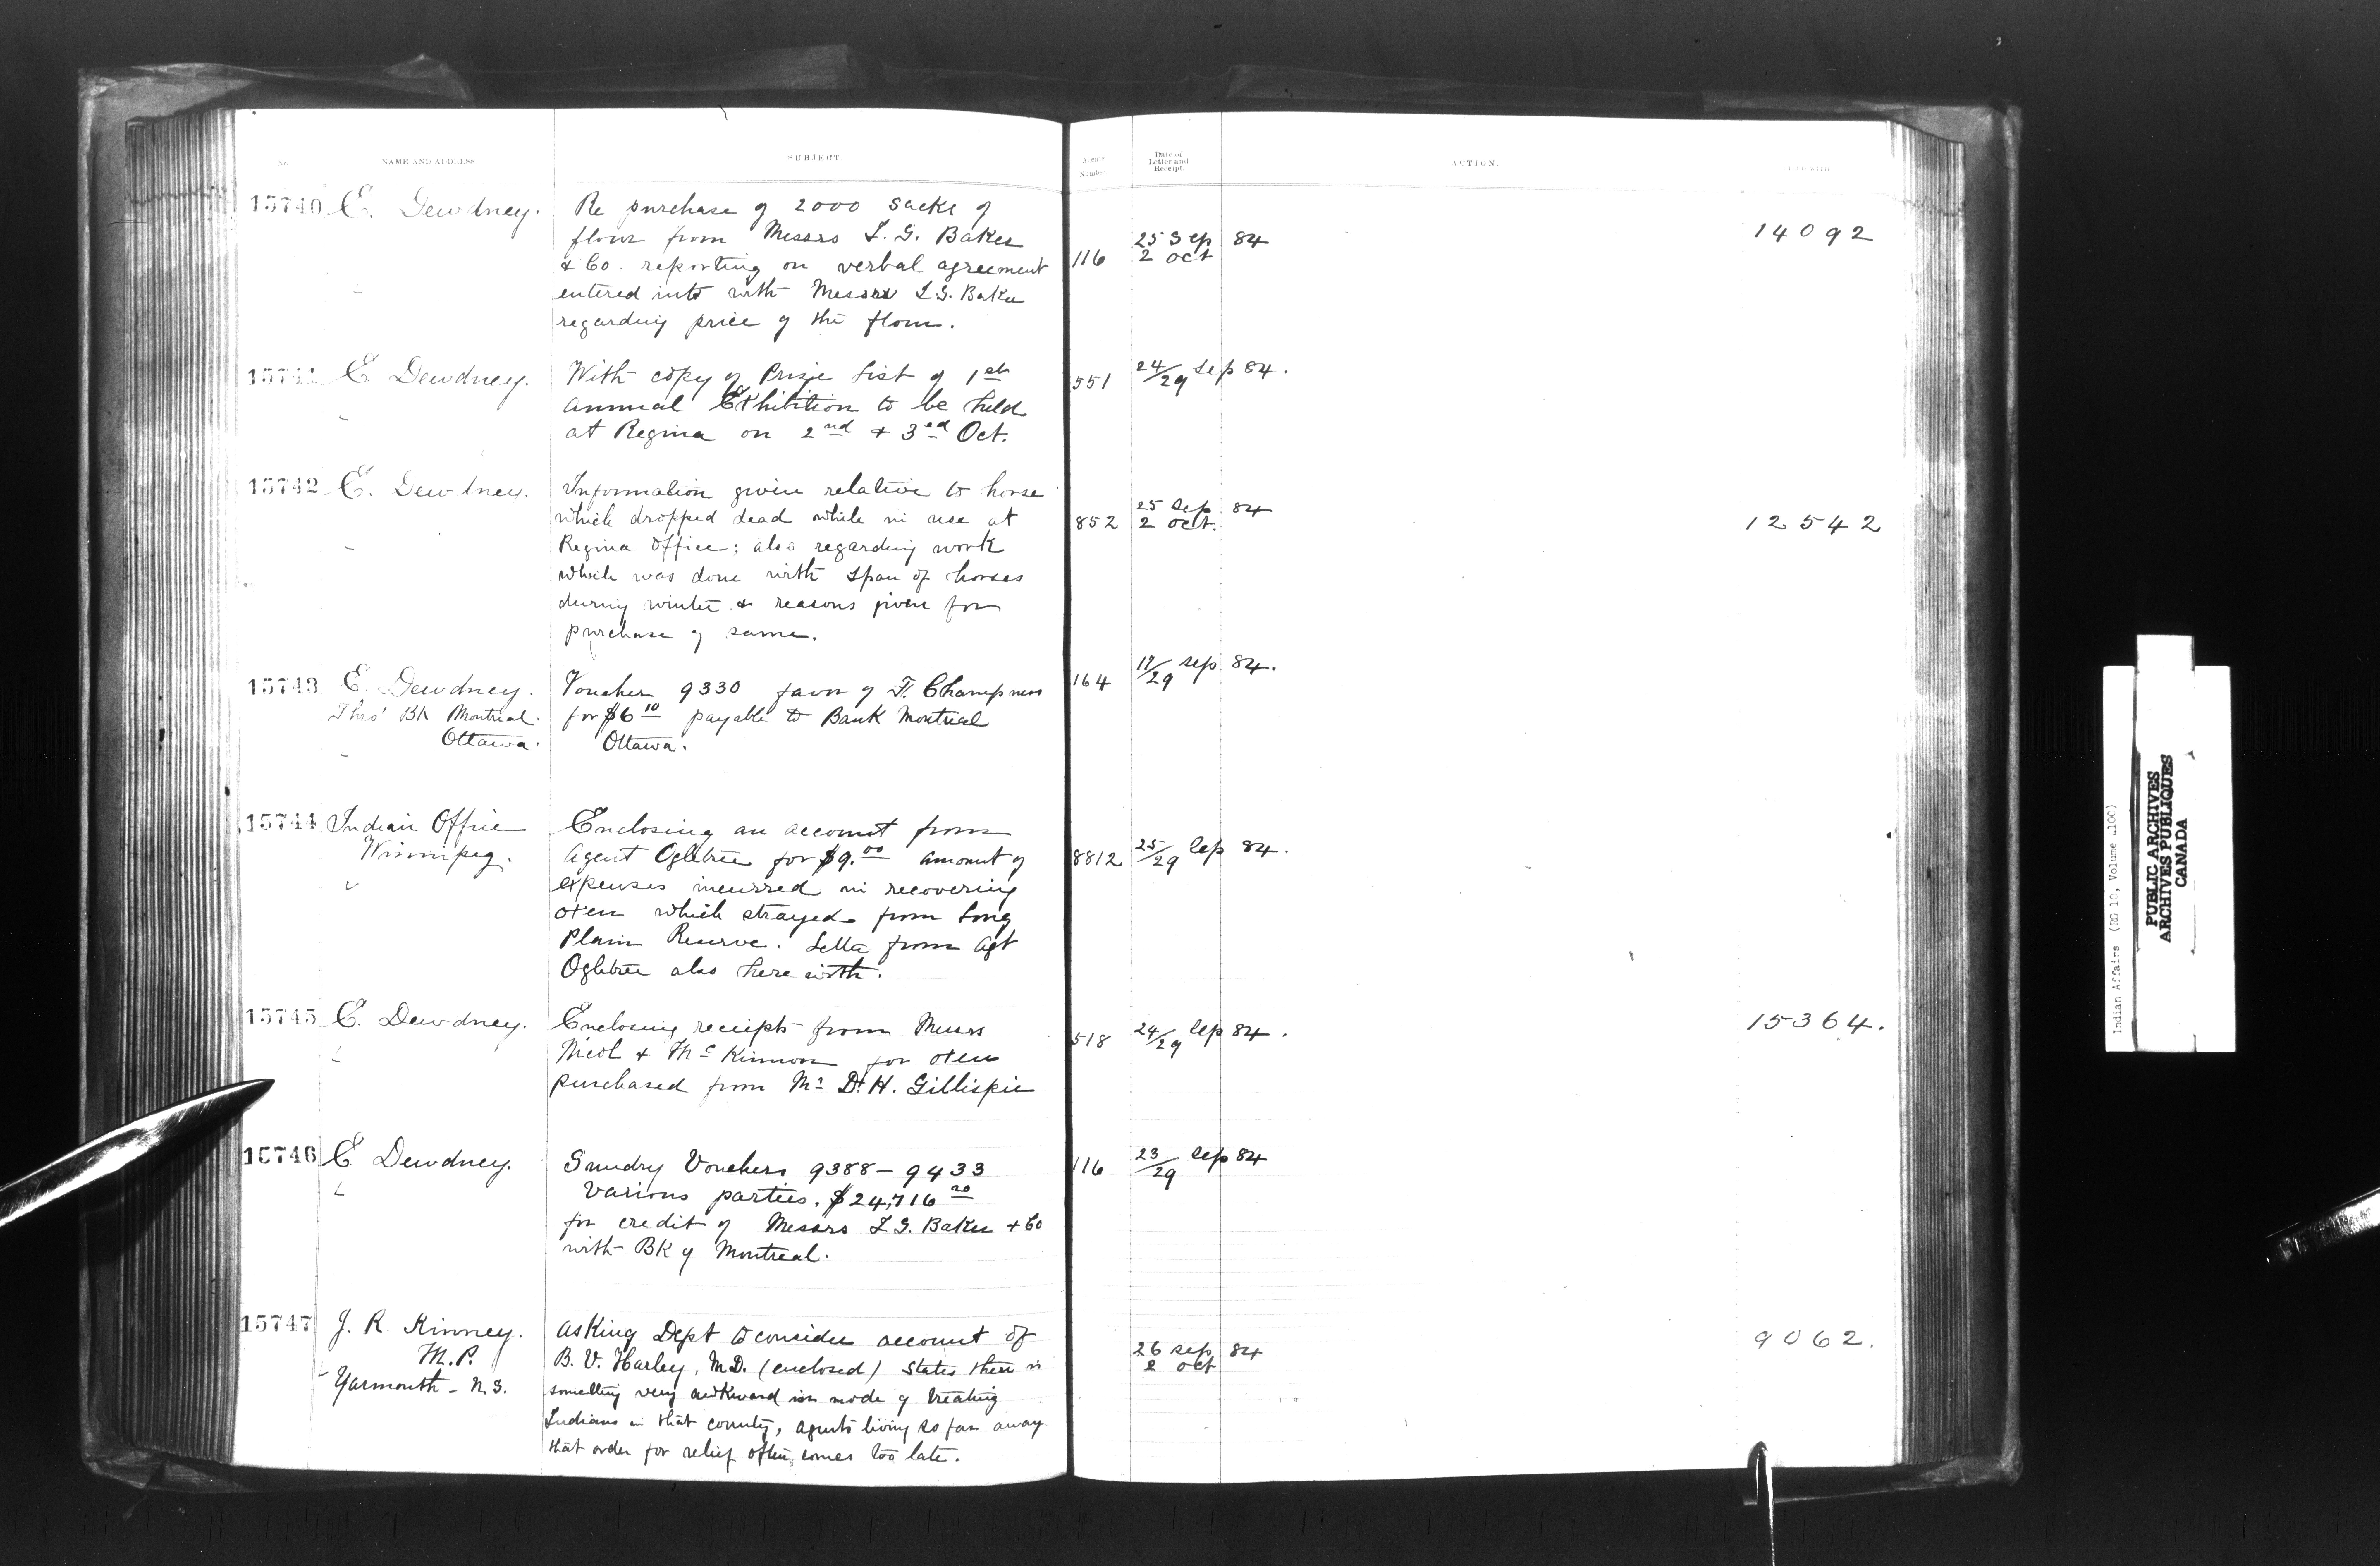 No. NAME AND ADDRESS SUBJECT. Agents Number Date of Letter and Receipt. ACTION.
15740 E. Dewdney. Re purchase of 2000 sacks of
flour from Messrs I. G. Baker
& Co. reporting on verbal agreement
entered into with Messrs I.G. Baker
regarding price of the flour.
116 25 Sep 84
2 Oct
14092
15741 E. Dewdney. With copy of Prize List of 1st
annual Exhibition to be held
at Regina on 2nd & 3rd Oct.
551 24/29 Sep 84.
15742 E. Dewdney. Information given relative to horse
which dropped dead while in use at
Regina Office; also regarding work
which was done with span of horses
during winter & reasons given for
purchase of same.
852 25 Sep 84
2 Oct.
12542
15743 E. Dewdney. Voucher 9330 favor of F. Champness
Thro' Bk Montreal. for $6 10 payable to Bank Montreal
Ottawa. Ottawa.
164 17/29 Sep 84.
15744 Indian Office Enclosing an account from
Winnipeg. Agent Ogletree for $9.00 amount of
expenses incurred in recovering
oxen which strayed from Long
Plain Reserve. Letter from Agt
Ogletree also herewith.
8812 25/29 Sep 84.
15745 E. Dewdney. Enclosing receipts from Messrs
Nicol & McKinnon for oxen
purchased from Mr D. H. Gillispie
518 24/29 Sep 84.
15364.
15746 E. Dewdney. Sundry Vouchers 9388 - 9433
Various parties. $24,716 20
for credit of Messrs I G. Baker & Co
with Bk of Montreal.
116 23/29 Sep 84
15747 J. R. Kinney. Asking Dept to consider account of
M.P. B. V. Harley, M.D. (enclosed) States there is
Yarmouth - N.S. something very awkward in mode of treating
Indians in that county, agents living so far away
that order for relief often comes too late.
26 Sep 84
2 Oct
9062.
Indian Affairs (RG 10, Volume 1100)
PUBLIC ARCHIVES
ARCHIVES PUBLIQUES
CANADA